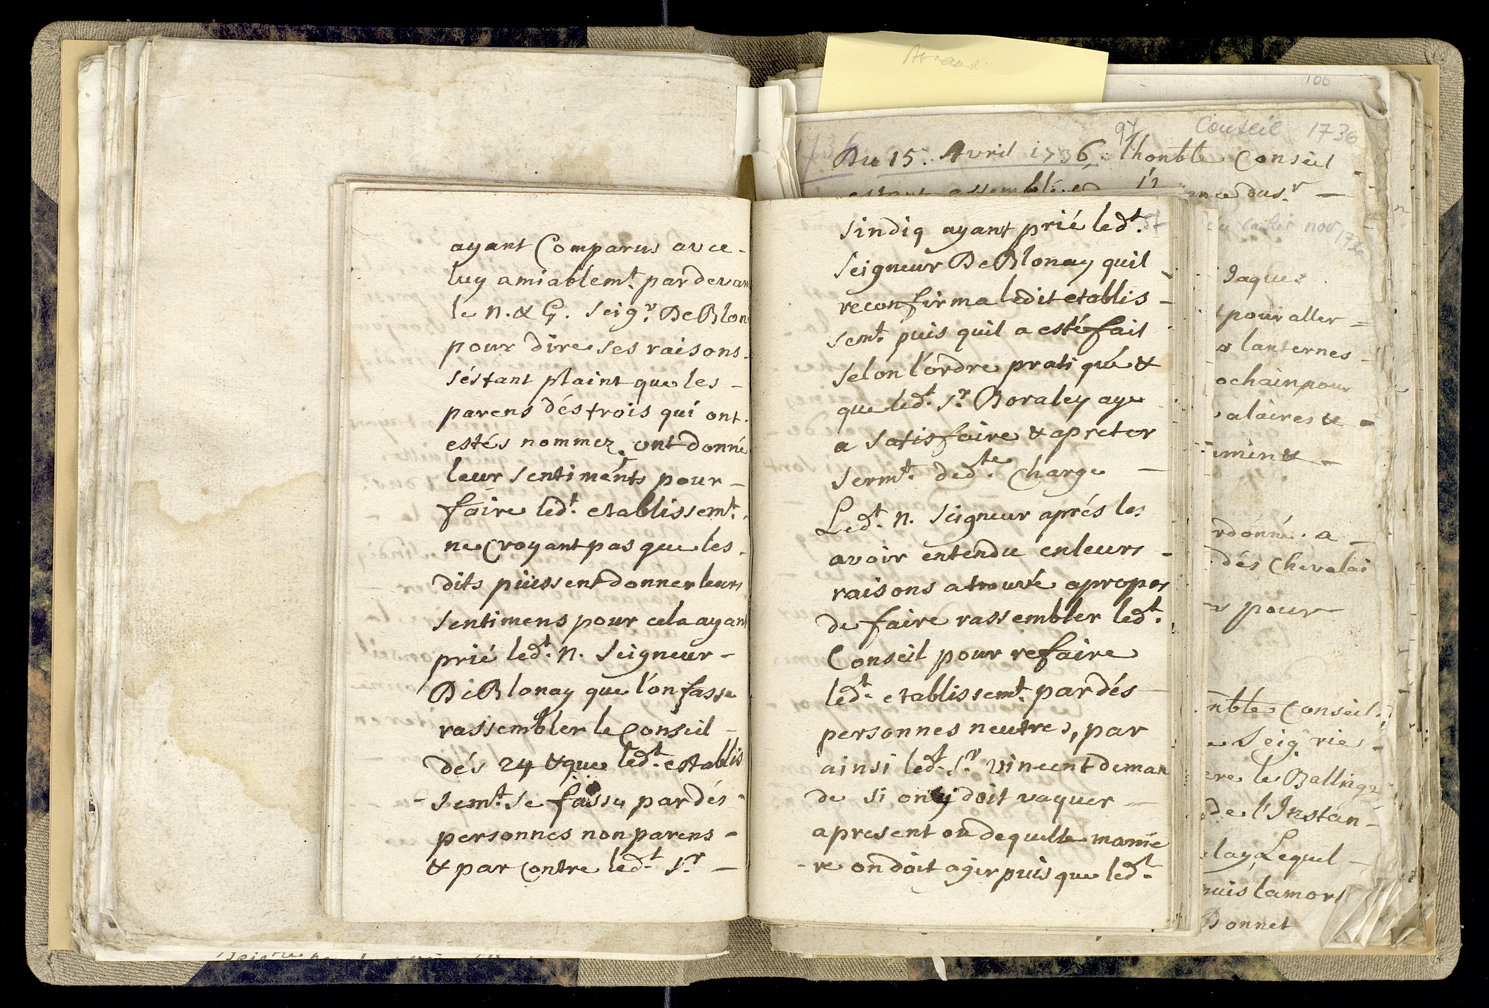 ayant Comparus avce -
luy amiablemt. par devan
le N. & G. Seigr. De Blon
pour dire ses raisons.
séstant plaint que les -
parens dés trois qui ont.
estés nommez, ont donné
leur sentiments pour -
faire ledt. etablissemt.
ne Croyant pas que les.
dits püissent donner leurs
sentimens pour cela ayan
prié ledt. N. Seigneur -
De Blonay que l'on fasse
rassembler le Conseil -
dés 24 & que ledt. establis
- semt. se faisse par dés -
personnes non parens -
& par Contre ledt. Sr. -
Sindiq ayant prié ledt.
Seigneur De Blonay quil -
reconfirma ledit etablis -
semt. puis quil a esté fait
selon l'ordre pratiqué &
que ledt. Sr. Boraley aye
a satisfaire & a preter
sermt. dedte. Charge -
Ledt. N. Seigneur aprés les
avoir entendu en leurs -
raisons a trouvé a propos
de faire rassembler ledt.
Conseil pour refaire
ledt. etablissemt. par dés -
personnes neutres, par
ainsi ledt. Sr. Vincent deman
de si on y doit vaquer -
a present ou de quelle manie
- re on doit agir puis que ledt.
100
97
Conseil 1736
Du 15. Avril 1736. l'honble Conseil
estant assemblé
Jaques
pour aller -
lanternes -
ochain pour
alaires & -
rdonné a -
dés Chevalai
pour
nble Conseil.
Seigrie -
le Ballings
de l'Instan-
lay Lequel -
puis la mort
Bonnet